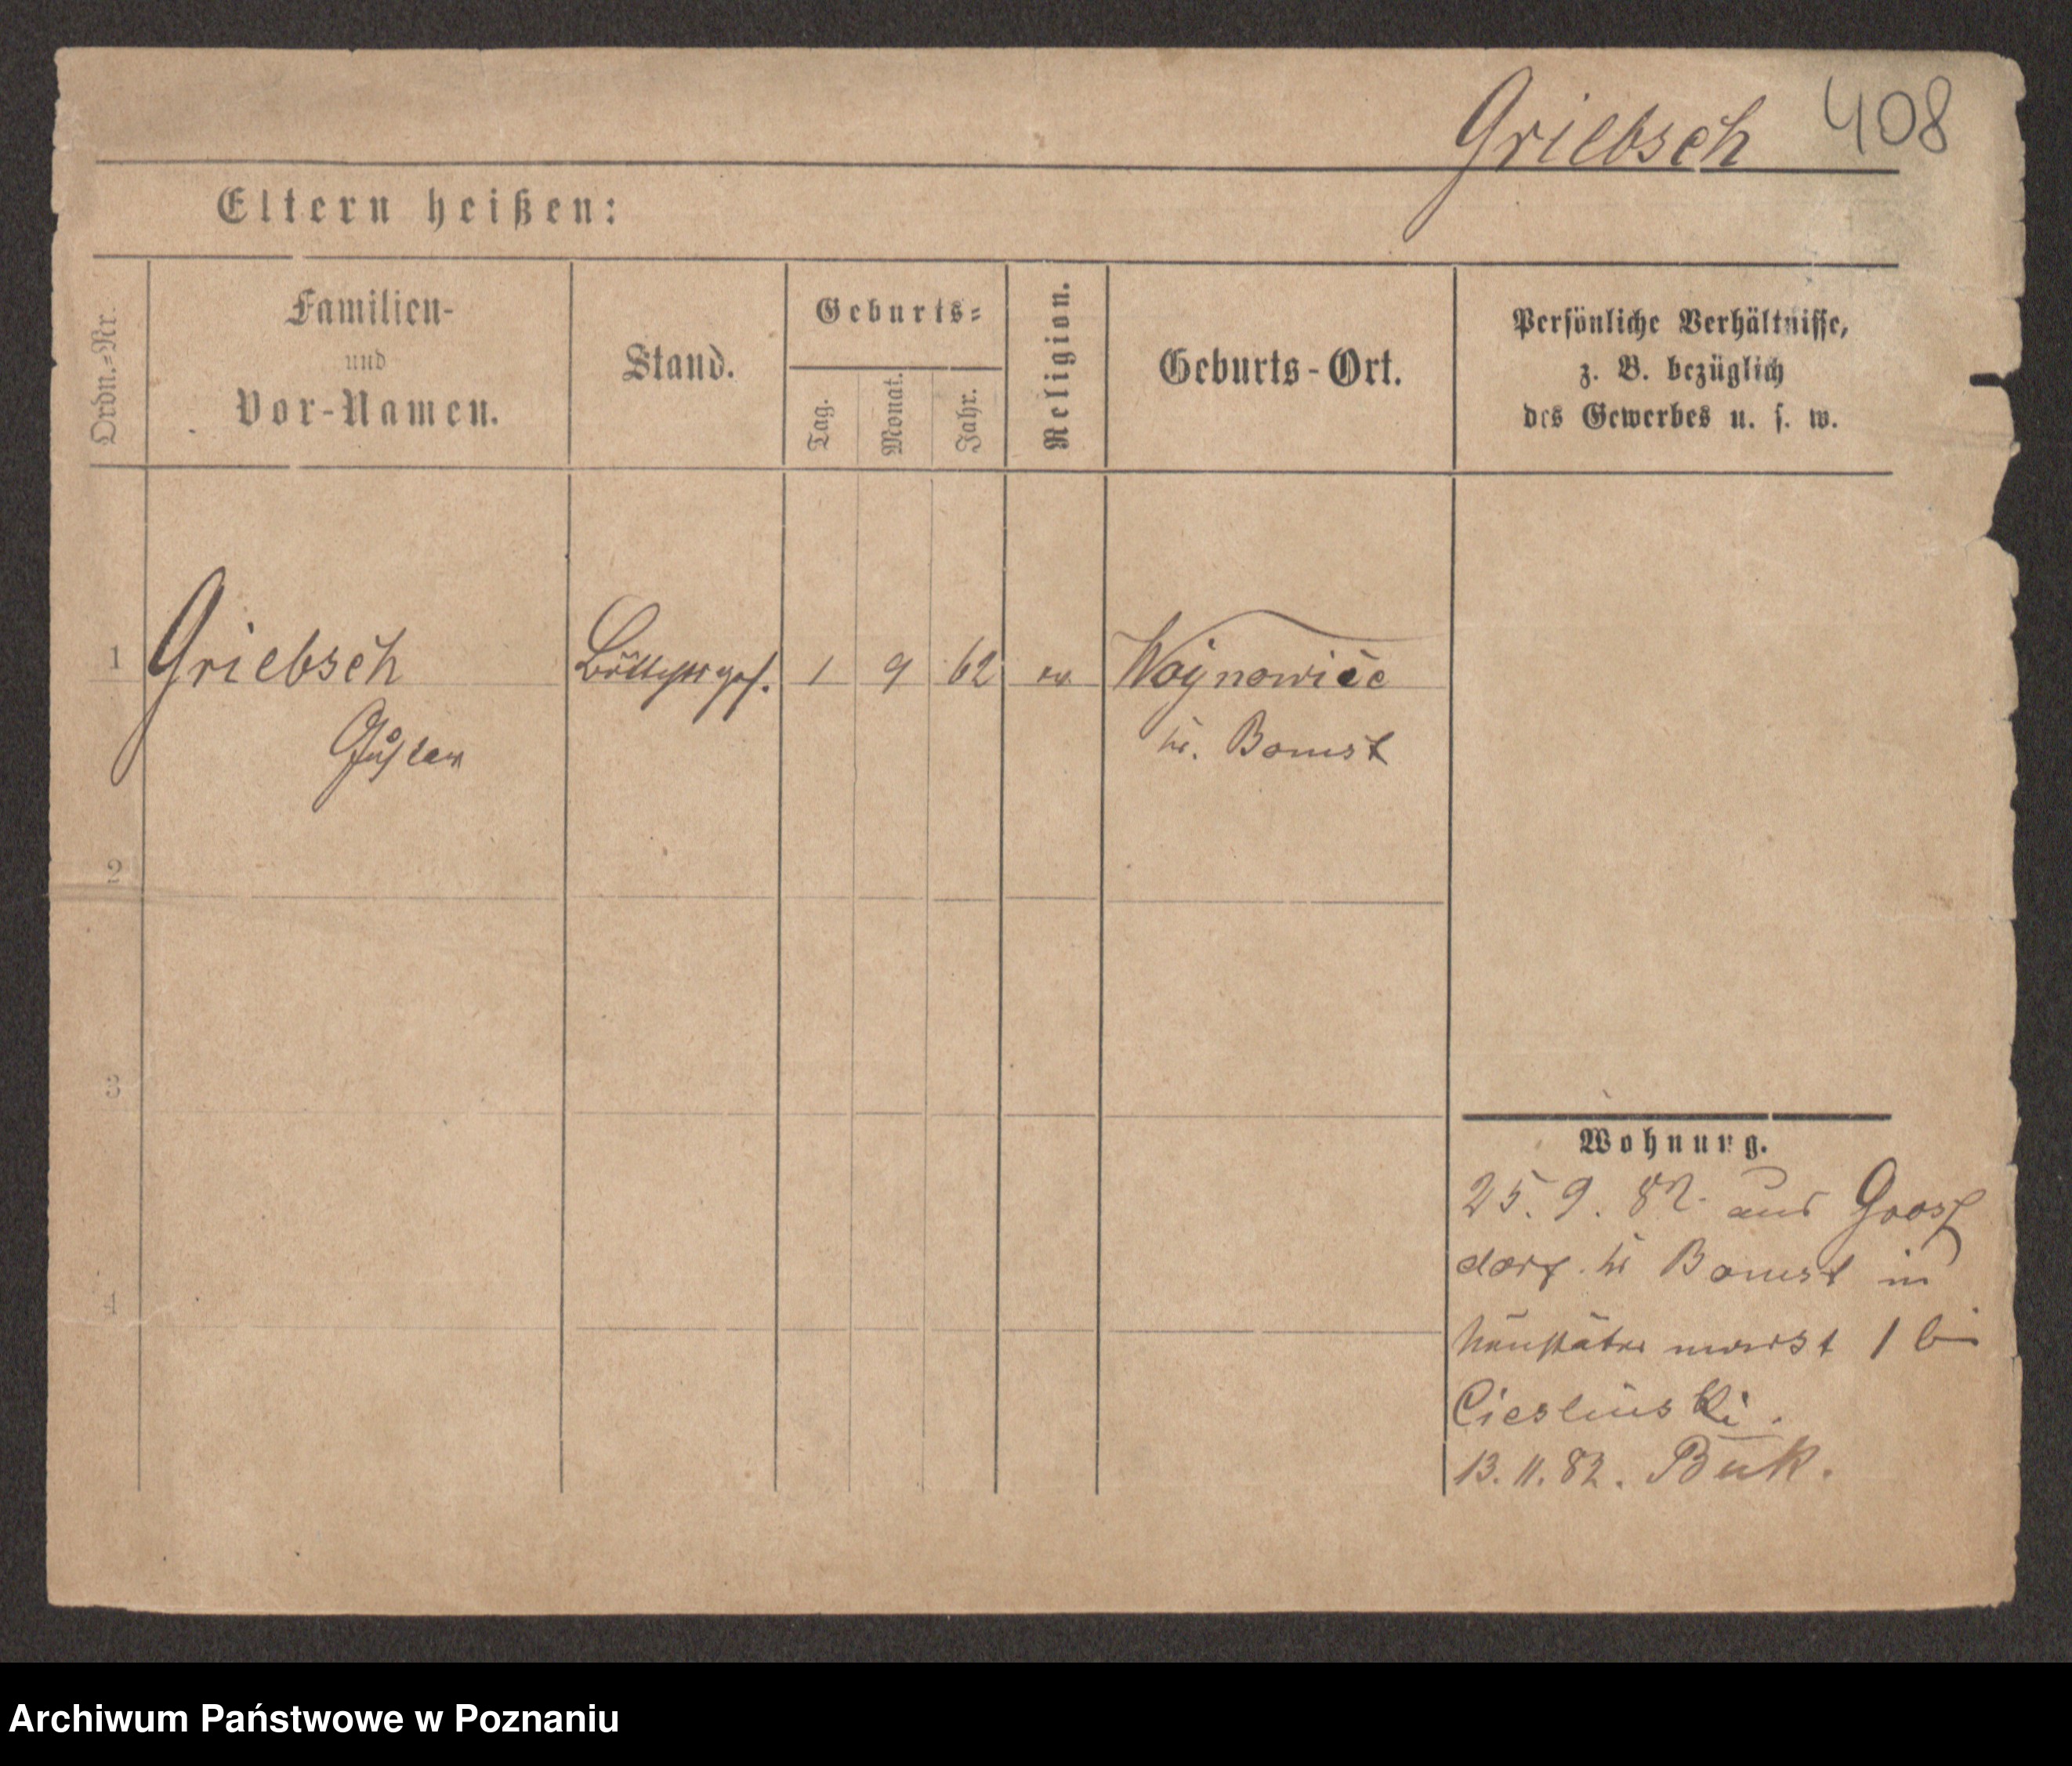 Griebsch 408
Eltern heißen:
Ordn.=Nr.
Familien-
und
Vor-Namen.
Stand.
Geburts=
Tag.
Monat.
Jahr.
Religion.
Geburts-Ort.
Persönliche Verhältnisse,
z. B. bezüglich
des Gewerbes u. s. w.
1 Griebsch Böttcherges. 1 9 62 ev. Woynowice
Gustav Kr. Bomst
2
3
4
Wohnung.
25. 9. 82. aus Gross
dorf. Kr Bomst in
Neustädter 1 bei
Cieslinski.
13. 11. 82. Buk.
Archiwum Państwowe w Poznaniu